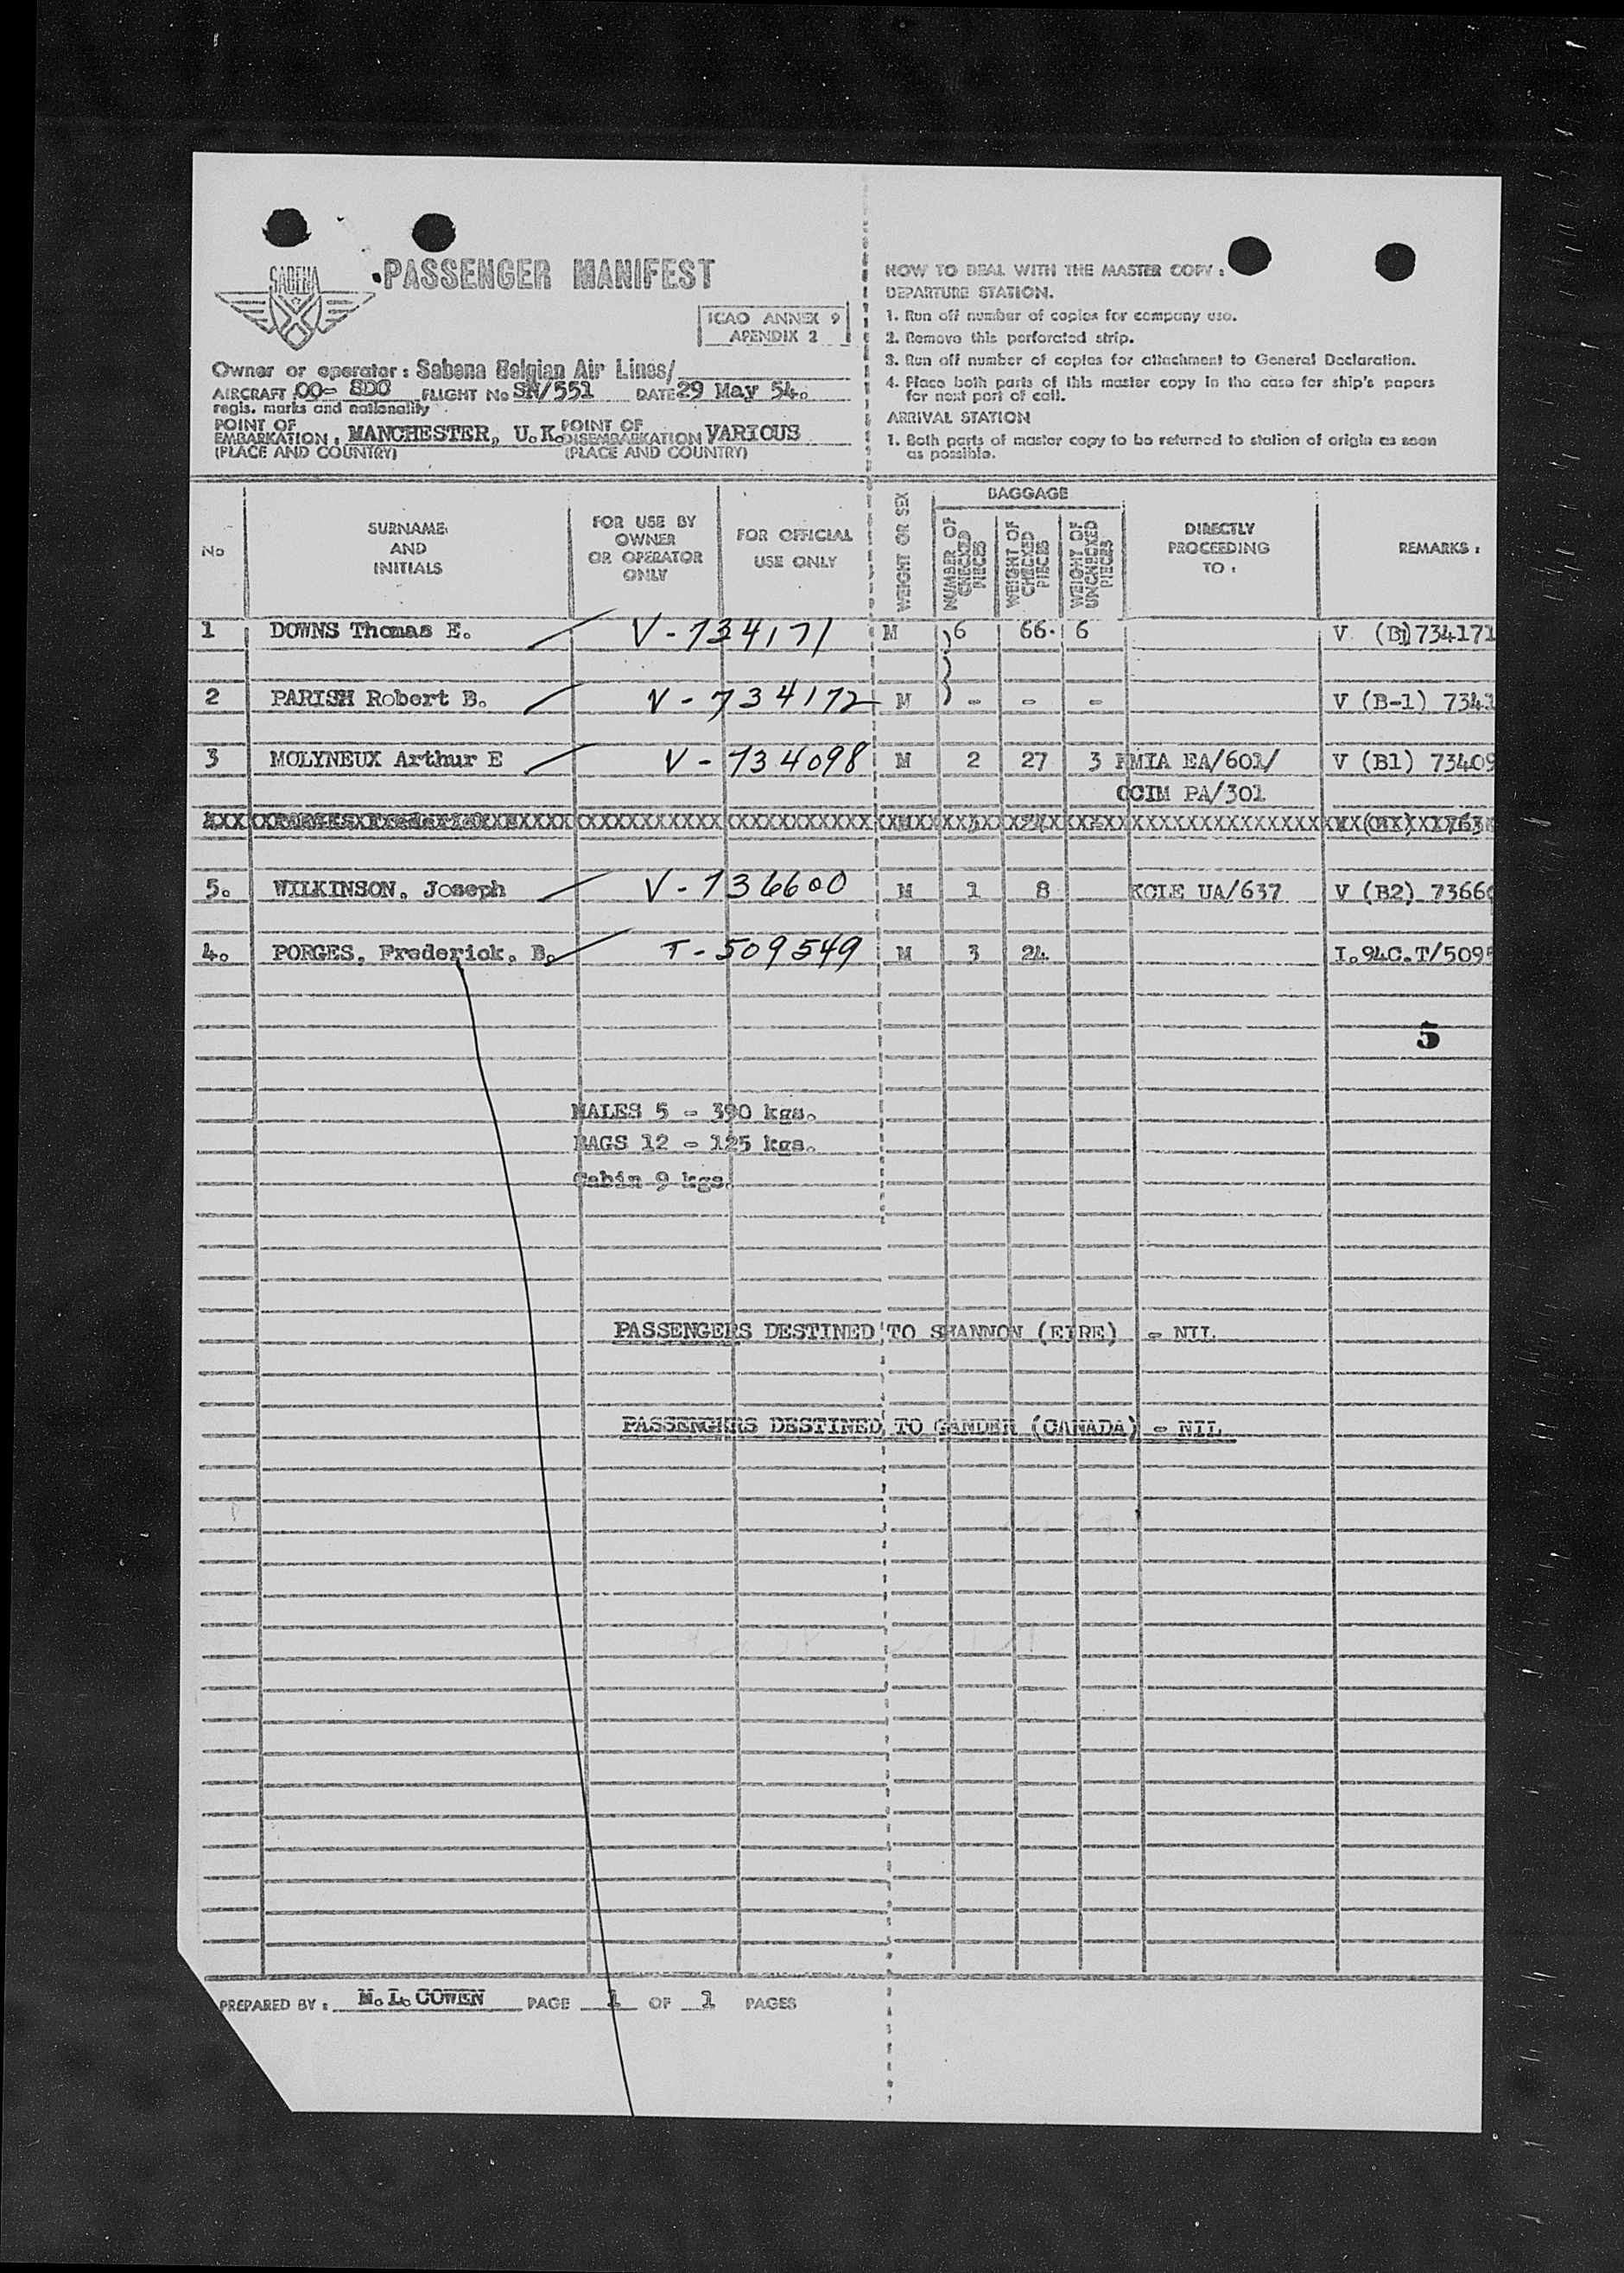 SABENA
PASSENGER MANIFEST
ICAO ANNEX 9
APENDIX 2
Owner or operator : Sabena Belgian Air Lines/
AIRCRAFT OO- SDC FLIGHT No SN/551 DATE 29 May 54.
regis. marks and nationality
POINT OF EMBARKATION : MANCHESTER, U.K. POINT OF DISEMBARKATION VARIOUS
(PLACE AND COUNTRY) (PLACE AND COUNTRY)
HOW TO DEAL WITH THE MASTER COPY :
DEPARTURE STATION.
1. Run off number of copies for company use.
2. Remove this perforated strip.
3. Run off number of copies for attachment to General Declaration.
4. Place both parts of this master copy in the case for ship's papers
for next port of call.
ARRIVAL STATION
1. Both parts of master copy to be returned to station of origin as soon
as possible.
No
SURNAME
AND
INITIALS
FOR USE BY
OWNER
OR OPERATOR
ONLY
FOR OFFICIAL
USE ONLY
WEIGHT OR SEX
BAGGAGE
NUMBER OF CHECKED PIECES
WEIGHT OF CHECKED PIECES
WEIGHT OF UNCHECKED PIECES
DIRECTLY
PROCEEDING
TO :
REMARKS :
1 DOWNS Thomas E. V-734171 M 6 66. 6 V (B1)734171
2 PARISH Robert B. V-734172 M - - - V (B-1) 7341
3 MOLYNEUX Arthur E V-734098 M 2 27 3 KMIA EA/601/ V (B1) 73409
OCIM PA/301
5. WILKINSON, Joseph V-736600 M 1 8 KCLE UA/637 V (B2) 7366
4. PORGES, Frederick, B. T-509549 M 3 24 I.94C.T/5095
5
MALES 5 - 390 kgs.
BAGS 12 - 125 kgs.
Cabin 9 kgs.
PASSENGERS DESTINED TO SHANNON (EIRE) - NIL
PASSENGERS DESTINED TO GANDER (CANADA) - NIL
PREPARED BY : M.L. COWEN PAGE 1 OF 1 PAGES